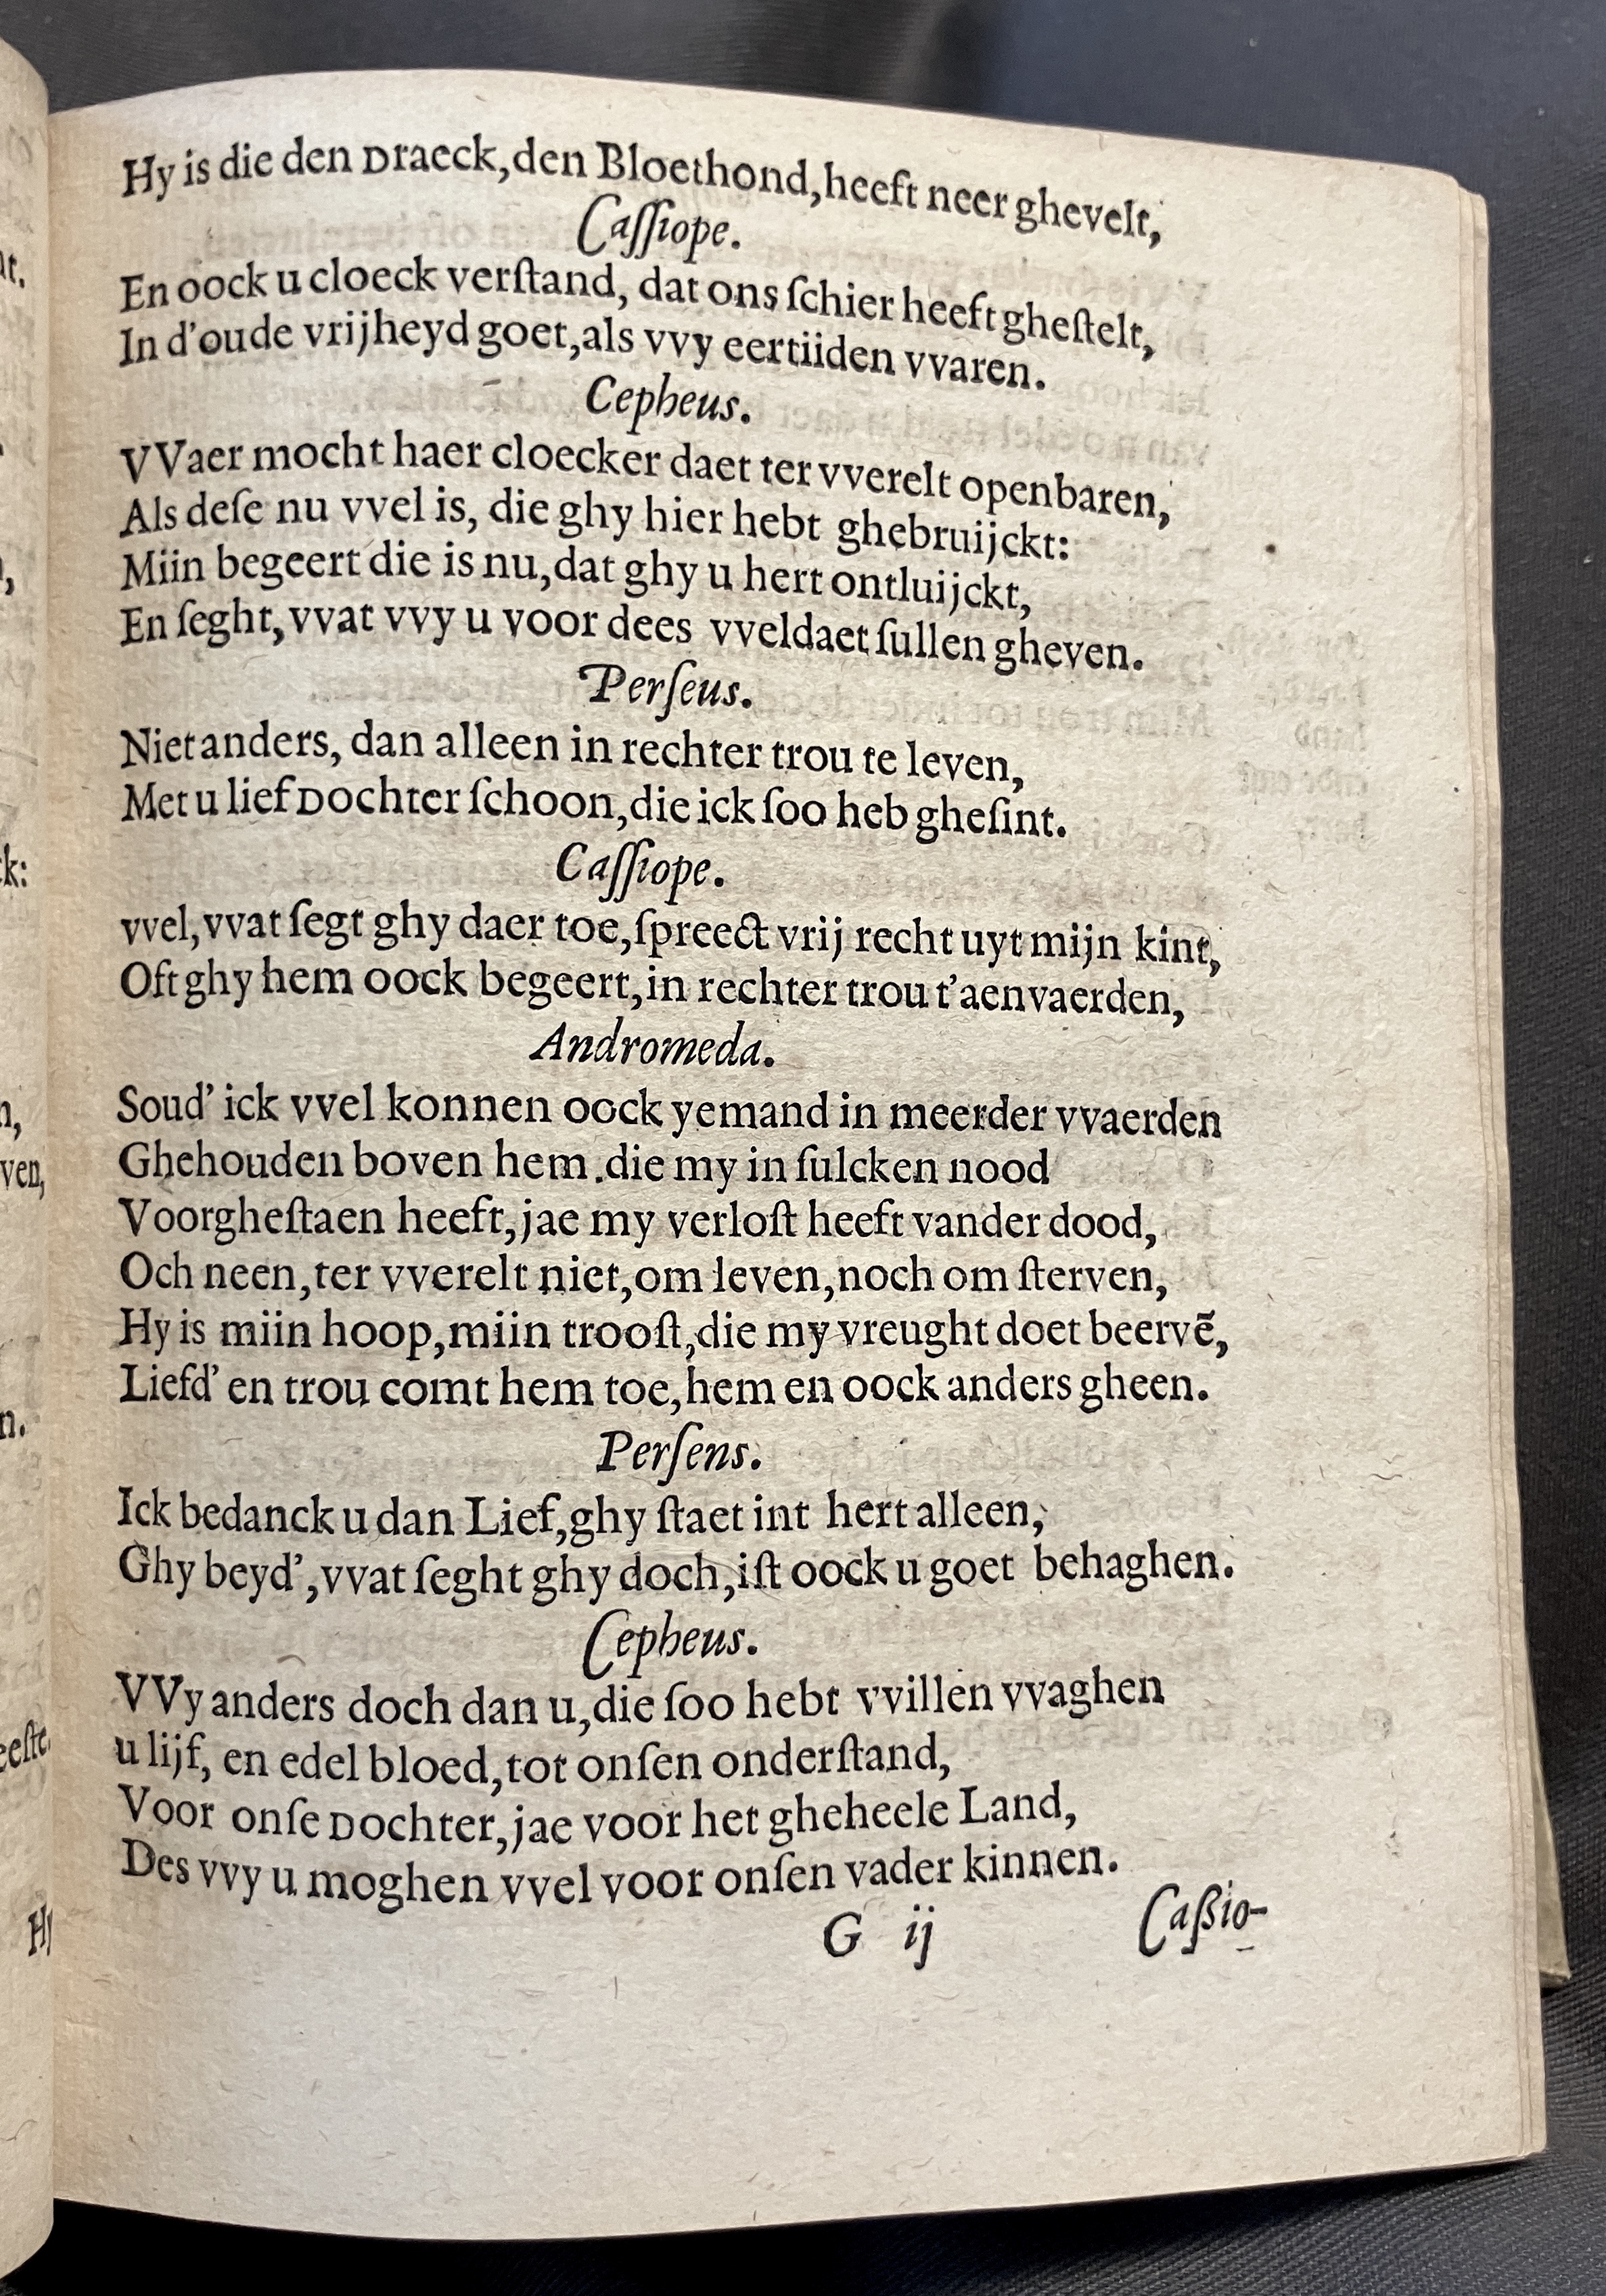 Hy is die den Draeck, den Bloethond, heeft neer ghevelt,
Caſſiope.
En oock u cloeck verſtand, dat ons ſchier heeft gheſtelt,
In d'oude vrijheyd goet, als vvy eertiiden vvaren.
Cepheus.
VVaer mocht haer cloecker daet ter vverelt openbaren,
Als deſe nu vvel is, die ghy hier hebt ghebruijckt:
Miin begeert die is nu, dat ghy u hert ontluijckt,
En ſeght, vvat vvy u voor dees vveldaet ſullen gheven.
Perſeus.
Niet anders, dan alleen in rechter trou te leven,
Met u lief Dochter ſchoon, die ick ſoo heb gheſint.
Caſſiope.
vvel, vvat ſegt ghy daer toe, ſpreect vrij recht uyt mijn kint,
Oft ghy hem oock begeert, in rechter trou t'aenvaerden,
Andromeda.
Soud' ick vvel konnen oock yemand in meerder vvaerden
Ghehouden boven hem. die my in ſulcken nood
Voorgheſtaen heeft, jae my verloſt heeft vander dood,
Och neen, ter vverelt niet, om leven, noch om ſterven,
Hy is miin hoop, miin trooſt, die my vreught doet beervẽ,
Liefd' en trou comt hem toe, hem en oock anders gheen.
Perſens.
Ick bedanck u dan Lief, ghy ſtaet int hert alleen,
Ghy beyd', vvat ſeght ghy doch, iſt oock u goet behaghen.
Cepheus.
VVy anders doch dan u, die ſoo hebt vvillen vvaghen
u lijf, en edel bloed, tot onſen onderſtand,
Voor onſe Dochter, jae voor het gheheele Land,
Des vvy u moghen vvel voor onſen vader kinnen.
G ij Caßio-